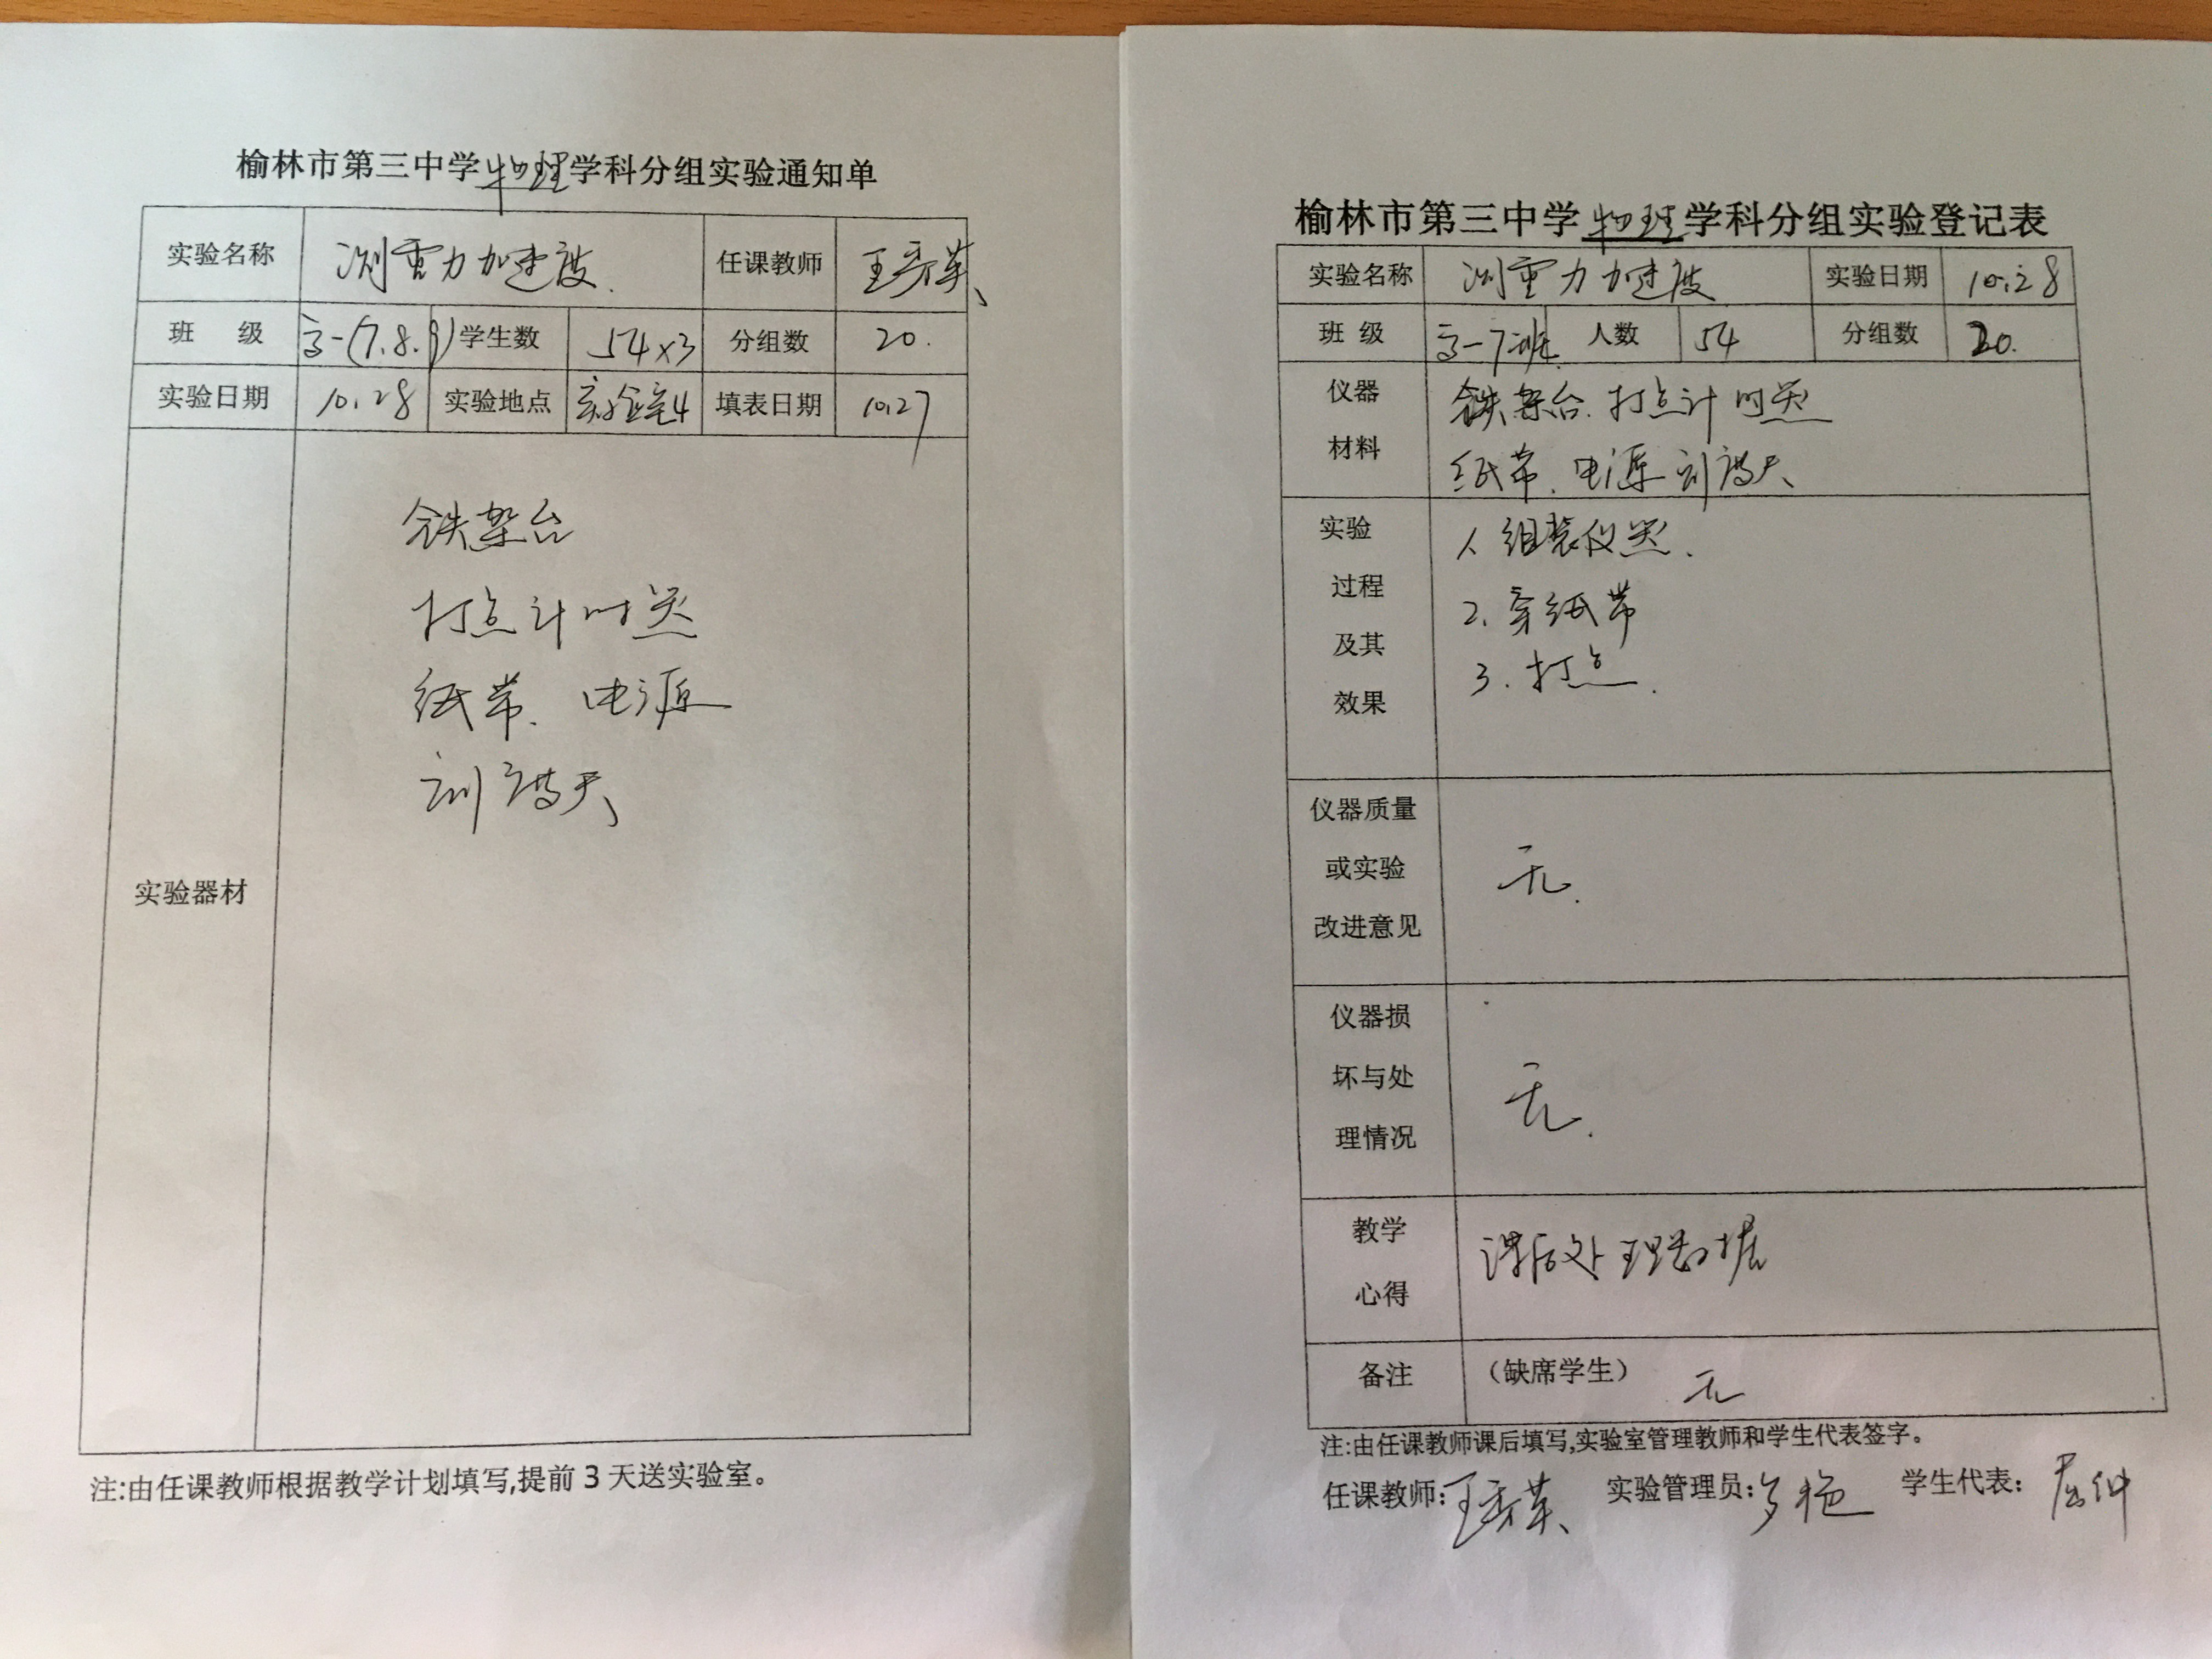 榆林市第三中学物理学科分组实验通知单
实验名称 测重力加速度. 任课教师 王秀英
班 级 高一(7.8.9) 学生数 54×3 分组数 20.
实验日期 10.28 实验地点 实验室4 填表日期 10.27
实验器材
铁架台
打点计时器
纸带、电源
刻度尺
注:由任课教师根据教学计划填写,提前 3 天送实验室。
榆林市第三中学物理学科分组实验登记表
实验名称 测重力加速度 实验日期 10.28
班 级 高一7班 人数 54 分组数 20.
仪器
材料
铁架台.打点计时器
纸带、电源 刻度尺
实验
过程
及其
效果
1、组装仪器.
2、穿纸带
3.打点.
仪器质量
或实验
改进意见
无.
仪器损
坏与处
理情况
无.
教学
心得
课后处理数据
备注 (缺席学生) 无
注:由任课教师课后填写,实验室管理教师和学生代表签字。
任课教师:王秀英 实验管理员: 学生代表: